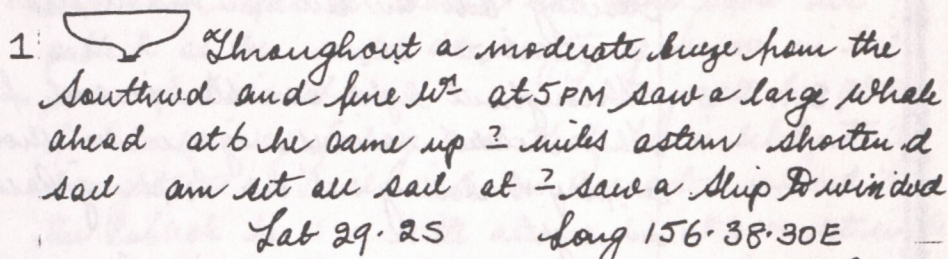 1 Throughout a moderate breeze from the
Southwd and fine Wr at 5 PM saw a large Whale
ahead at 6 he came up ? miles astern shorten d
sail am set all sail at ? saw a Ship To windwd
Lat 29.25 Long 156.38.30E